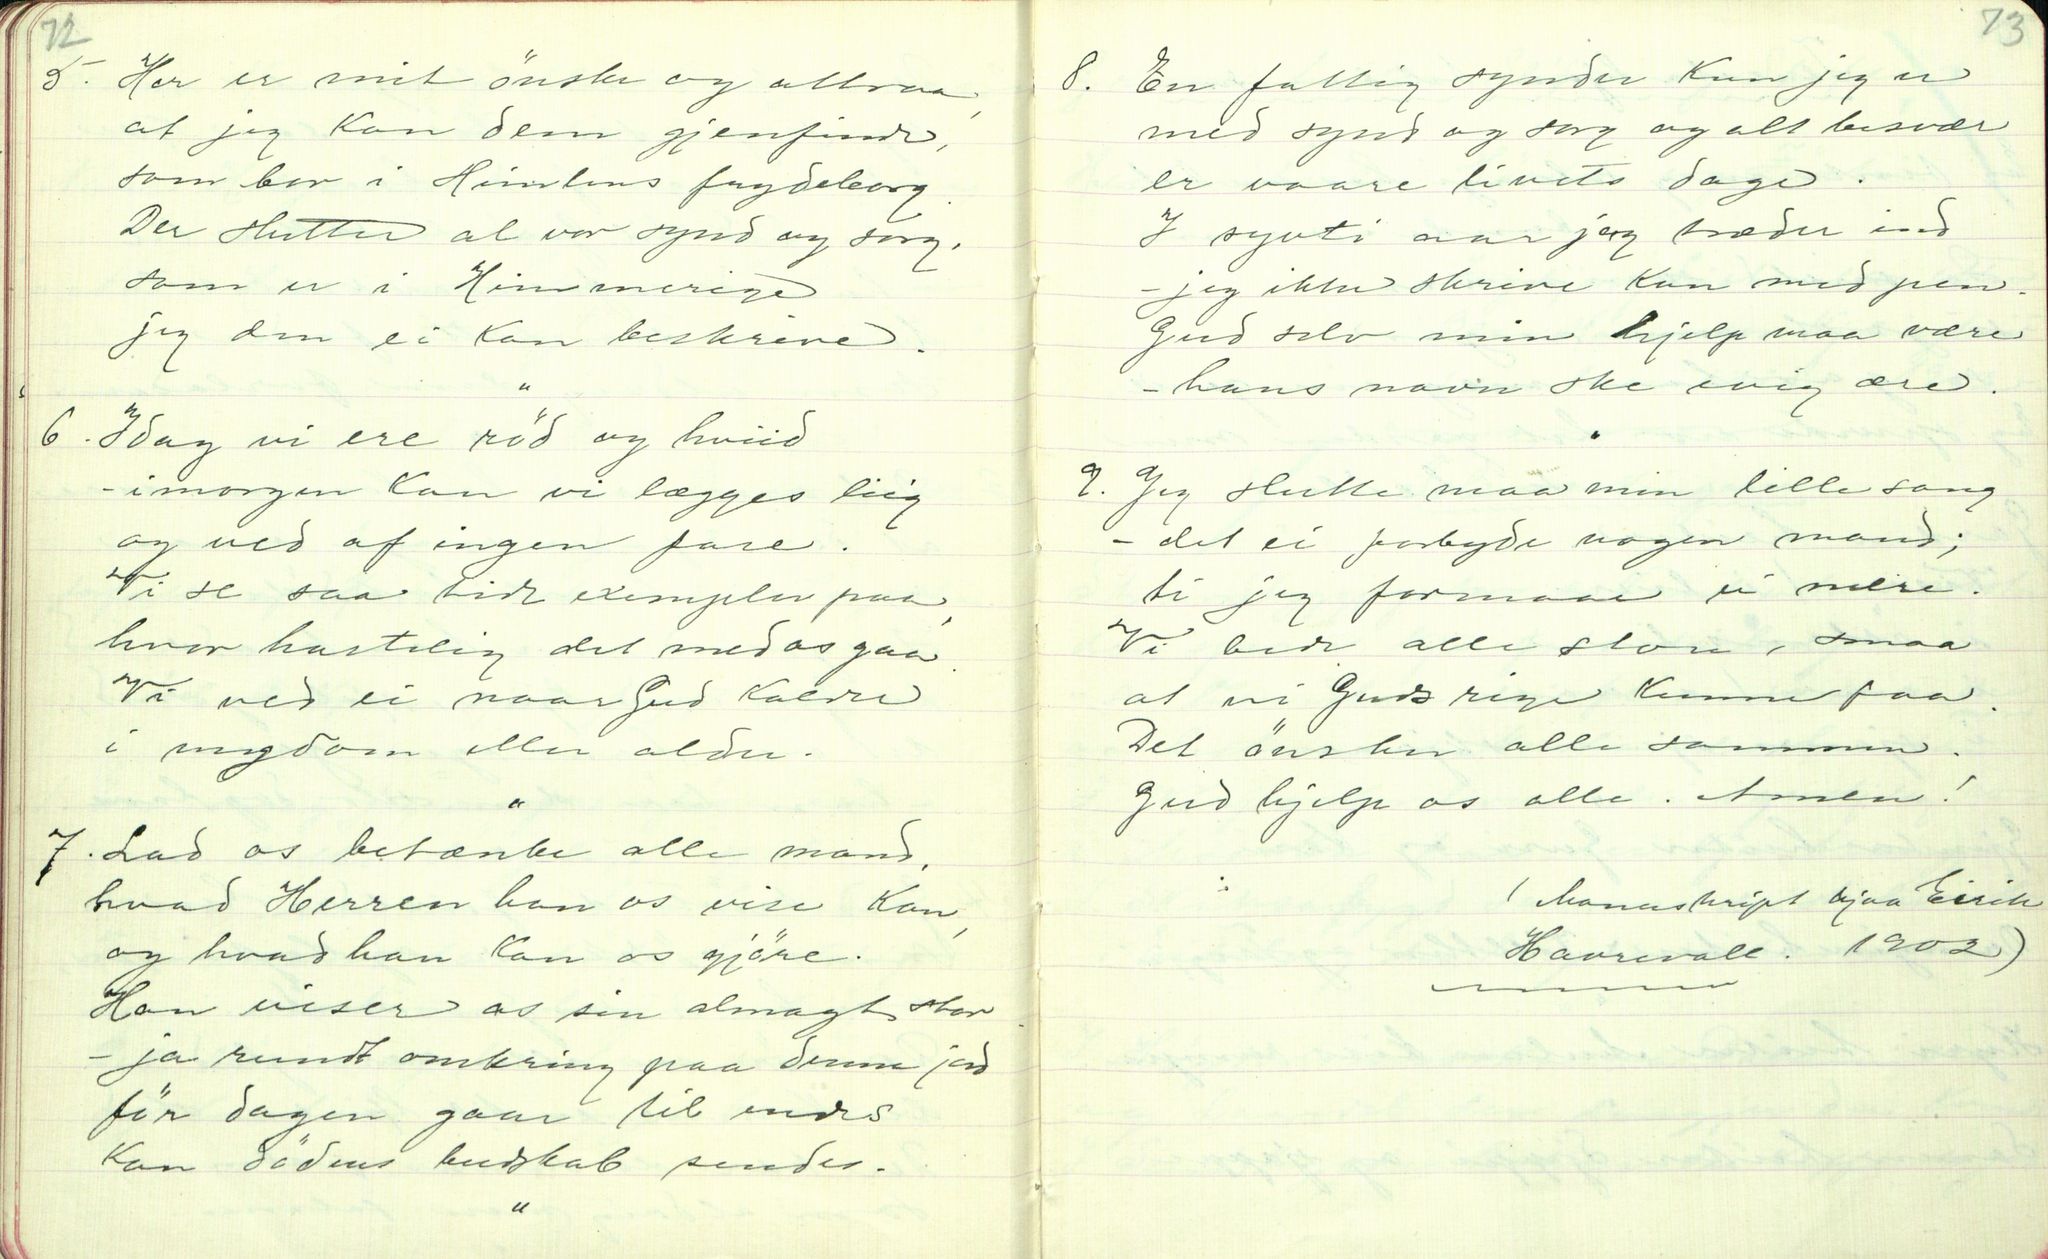 72
5. Her er mit önske og attraa,
at jeg kan dem gjenfinde,
som bor i Himlens frydeborg.
Der slutter al vor synd og sorg.
som er i Himmerige
jeg den ei kan beskrive.
"
6. Idag vi ere röd og hviid
- imorgen kan vi lægges liig
og ved af ingen fare.
Vi se saa tidt exempler paa,
hvor hastelig det med os gaa.
Vi ved ei naar Gud kalder
i ungdom eller alder.
"
7. Lad os betænke alle mand,
hvad Herren han os vise kan,
og hvad han kan os gjöre.
Han viser os sin almagt stor.
- ja rundt omkring paa denne jord
för dagen gaar til ende
kan dödens budskab sendes.
"
73
8. En fattig synder kun jeg er
med synd og sorg og alt besvær
er vaare livets dage.
I syvti aar jeg træder ind
- jeg ikke skrive kan med pen.
Gud selv min hjelp maa være
- hans navn ske evig ære.
"
9. Jeg slutte maa min lille sang
- det ei forbyde nogen mand;
ti jeg formaar ei mere.
Vi bede alle store, smaa
at vi Guds rige kunne faa.
Det önsker alle sammen.
Gud hjelp os alle. Amen!
(Manuskript hjaa Eirik
Havrevoll. 1902)